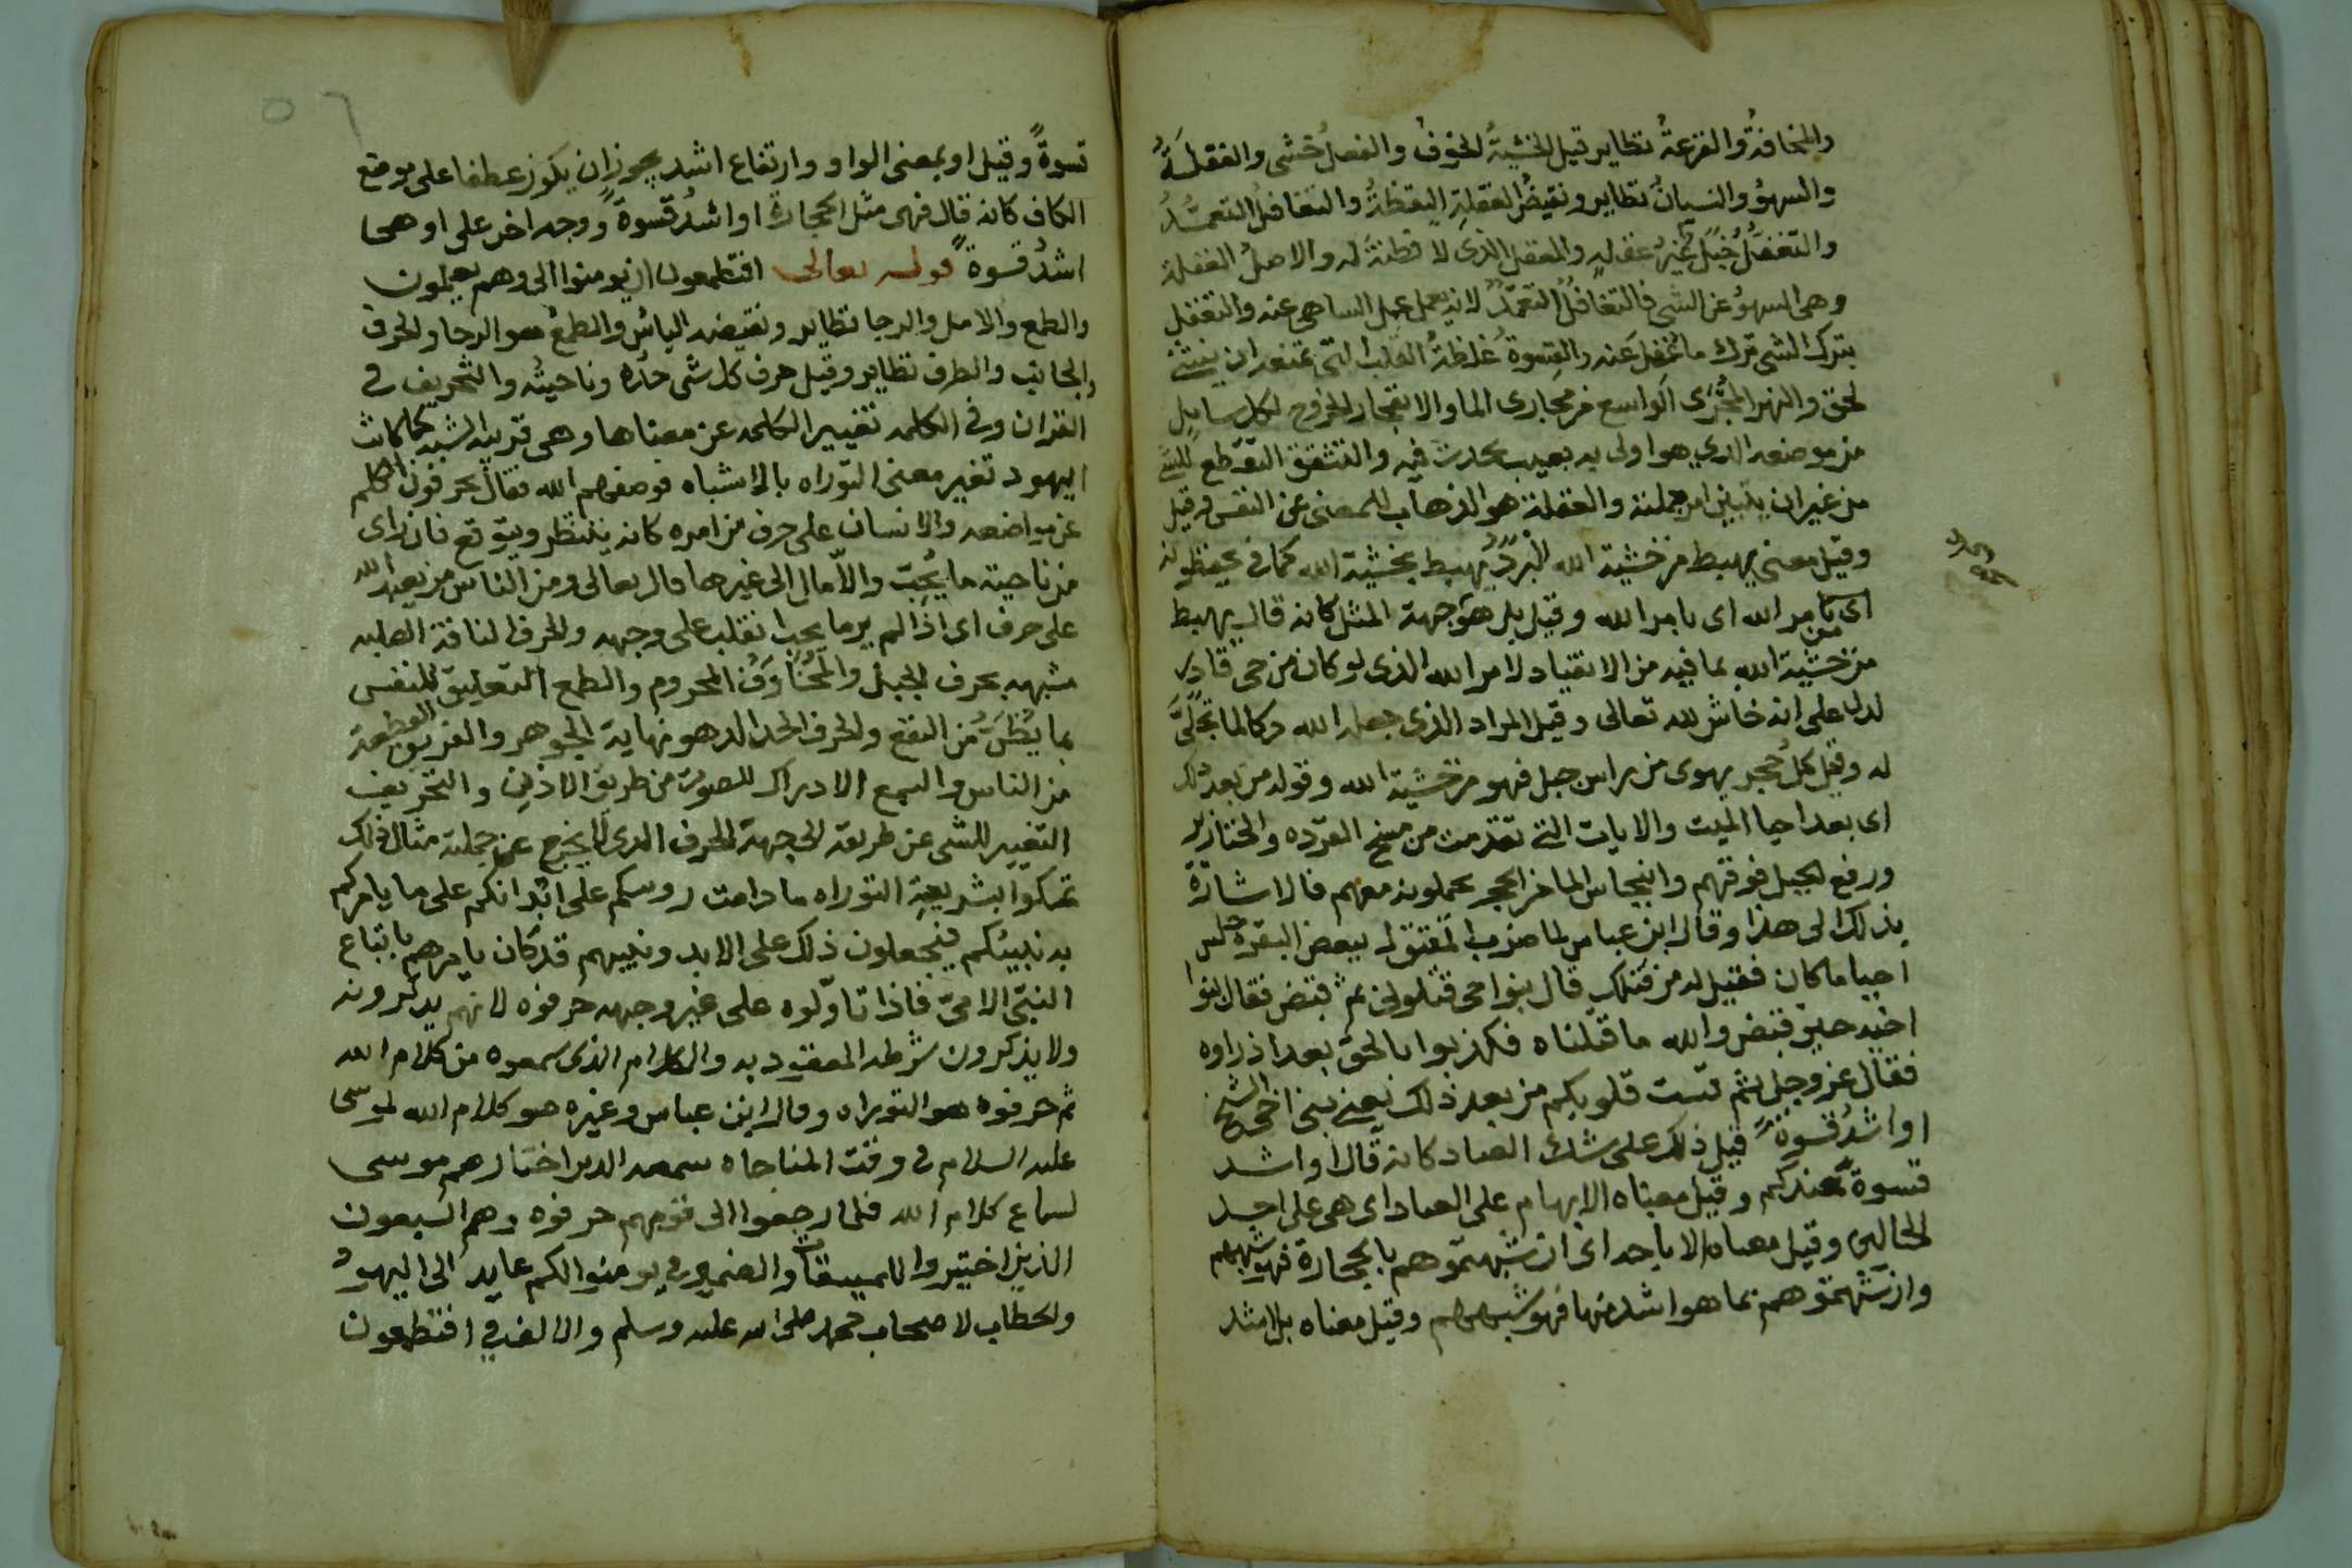 والمخافة والفزعة نظاير قيل الخشية الخوف والفصل خشى والغفلة
والسهو والنسيان نظاير ونقيض الغفلة اليقظة والتغافل التعمد
والتغفل عن غفله والمغفل الذى لا فطنة له والاصل الغفلة
وهى السهو عن الشى فالتغافل التعمد لانه يعمل عمل الساهى عنه والتغفل
بترك الشى ترك ما غفل عنه والقسوة غلظة القلب التى تمنعه ان ينثنى
لحق والنهر المجرى الواسع من مجارى الما والانفجار الخروج لكل سايل
من موضعه الذي هوا ولى به بعيب يحدث فيه والتشقق التقطع للشى
من غير ان يتباين امر جملته والغفلة هو الذهاب للمعنى عن النفس
وقيل معنى يهبط من خشية الله يهبط بخشية الله كما فى يحفظونه
اى من امر الله اى بامر الله وقيل بل هو جهة المثل كانه قال يهبط
من خشية الله بما فيه من الانقياد لامر الله الذى لو كان من حى قادر
لدل على انه خاش لله تعالى وقيل المراد الذى جعله الله دكا لما تجلى
له وقيل كل حجر يهوى من راس جبل فهو من خشية الله وقوله من بعد ذلك
اى بعد احيا الميت والايات التى تقدمت من مسخ القرده والخنازير
ورفع الجبل فوقهم وانبجاس الما من الحجر يحملونه معهم فالاشارة
بذلك الى هذا وقال ابن عباس لما ضرب المقتول ببعض البقرة جلس
احيا ما كان فقيل له من قتلك قال بنوا خى قتلونى ثم قبض فقال بنوا
اخيه حين قبض والله ما قتلناه فكذبوا بالحق بعد اذ راوه
فقال عز وجل ثم قست قلوبكم من بعد ذلك يعنى بنى اخى الشيخ
او اشد قسوة قيل ذلك على شك العباد كانه قال او اشد
قسوة عندكم وقيل معناه الابهام على العباد اى هى على احد
الحالين وقيل معناه الاباحه اى ان شبهتموهم بالحجارة فهو شبههم
وان شبهتموهم بما هو اشد منها فهو شبههم وقيل معناه بل اشد
٥٦
قسوة وقيل او بمعنى الواو وارتفاع اشد يجوز ان يكون عطفا على موضع
الكاف كانه قال فهى مثل الحجارة او اشد قسوة ووجه اخر على او هى
اشد قسوة قوله تعالى افتطمعون ان يومنوا الى وهم يعلمون
والطمع والامل والرجا نظاير ونقيضه الياس والطمع هو الرجا والحرف
والجانب والطرف نظاير وقيل حرف كل شى حده وناحيته والتحريف فى
القران وفى الكلمه تغيير الكلمه عن معناها وهى قريبه الشبه كما كانت
اليهود تغير معنى التوراه بالاشباه فوصفهم الله فقال يحرفون الكلم
عن مواضعه والانسان على حرف من امره كانه ينتظر ويتوقع فان راى
من ناحية ما يحب والا مال الى غيرها قال تعالى ومن الناس من يعبد الله
على حرف اى اذا لم ير ما يحب انقلب على وجهه والحرف الناقة الصلبه
شبهه بحرف الجبل والمحارف المحروم والطمع التعليق للنفس
بما يظن من النفع والحرف الحد الذ هو نهاية الجوهر والفريق القطعة
من الناس والسمع الادراك للصوت من طريق الاذن والتحريف
التغيير للشى عن طريقه الى جهة الحرف الذى لا يخرج عن جملة مثال ذلك
تمسكوا بشريعة التوراه ما دامت روسكم على ابدانكم على ما يامركم
به نبيئكم فيجعلون ذلك على الابد ونبيهم قد كان يامرهم باتباع
النبى الامى فاذا تاولوه على غير وجهه حرفوه لانهم يذكرونه
ولا يذكرون شرطه المعقود به والكلام الذى سمعوه من كلام الله
ثم حرفوه هو التوراه وقال ابن عباس وغيره هو كلام الله لموسى
عليه السلام فى وقت المناجاه سمعه الذين اختارهم موسى
لسماع كلام الله فلما رجعوا الى قومهم حرفوه وهم السبعون
الذين اختيروا للميقات والضمير فى يومنوا لكم عايد الى اليهود
والخطاب لاصحاب محمد صلى الله عليه وسلم والالف فى افتطمعون